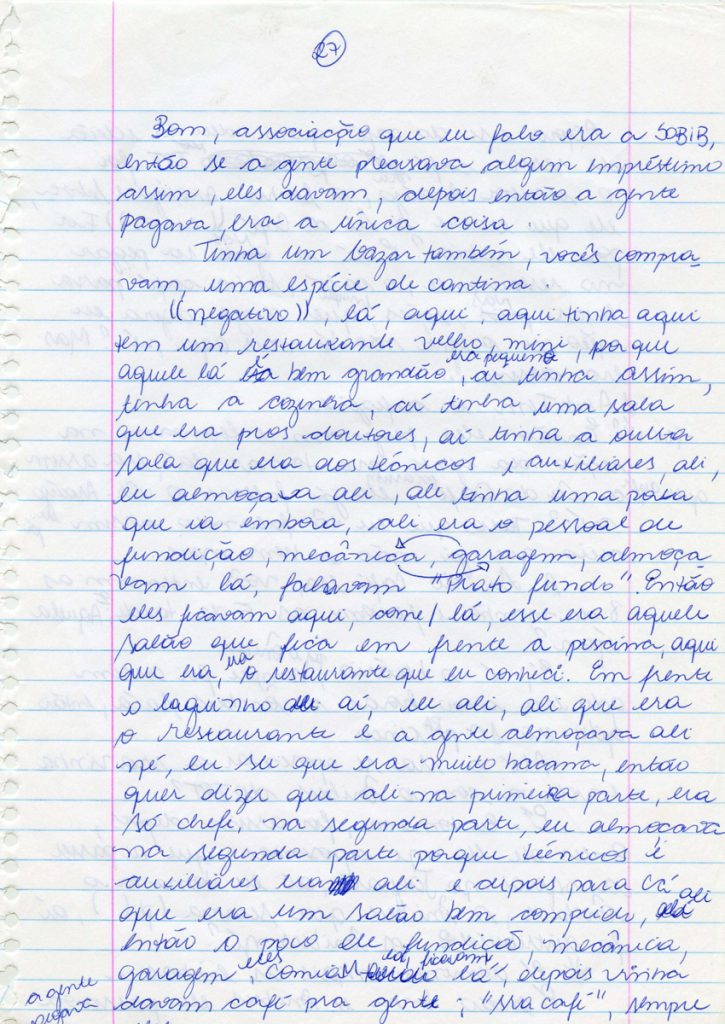 27
Bom, associação que eu falo era a SOBIB,
então se a gente precisava algum empréstimo
assim, eles davam, depois então a gente
pagava, era a única coisa.
Tinha um bazar também, vocês compra-
vam, uma espécie de cantina.
((negativo)), lá, aqui, aqui tinha aqui
tem um restaurante velho mini, porque
era pequeno
aquele lá é bem grandão, aí tinha assim,
tinha a cozinera, aí tinha uma sala
que era pros doutores, aí tinha a outra
sala que era dos técnicos, auxiliares, ali,
eu almoçava ali, ali tinha uma porta
que ia embora, ali era o pessoal de
fundição, mecânica, garagem, almoça
vam lá, falavam "Prato fundo". Então
eles ficavam aqui, come/ lá, esse era aquele
salão que fica em frente a piscina, aqui
que era, era o restaurante que eu conheci. Em frente
o laguinho aí, eu ali, ali que era
o restaurante e a gente almoçava ali
né, eu sei que era muito bacana, então
quer dizer que ali na primeira parte, era
só chefe, na segunda parte, eu almoçava
na segunda parte porque técnicos e
auxiliares era ali e depois para cá ali
que era um salão bem comprido,
então o povo de fundição, mecânica,
garagem, eles comia lá, depois vinha
ficavam
a gente
davam café pra gente, "sra café", sempre